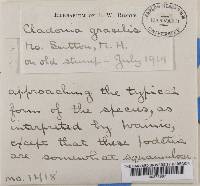 HERBARIUM OF L. W. RIDDLE
Cladonia gracilis
No. Sutton, N. H.
on old stump - July 1914
approaching the typical
form of the species, as
interpreted by Wainio,
except that these podetia
are somewhat squamulose.
no. 1418